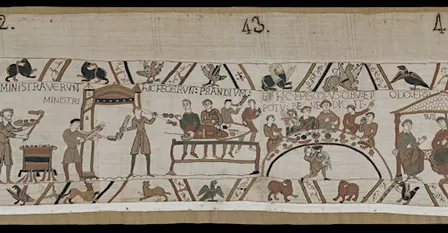 2.
43.
4
MINISTRAVERVN
MINISTRI
HIC FECERVN: PRANDIVM:
ET HIC EPISCOPVS: CIBV: ET
POTV: BE NEDICIT.
ODO: EPS: